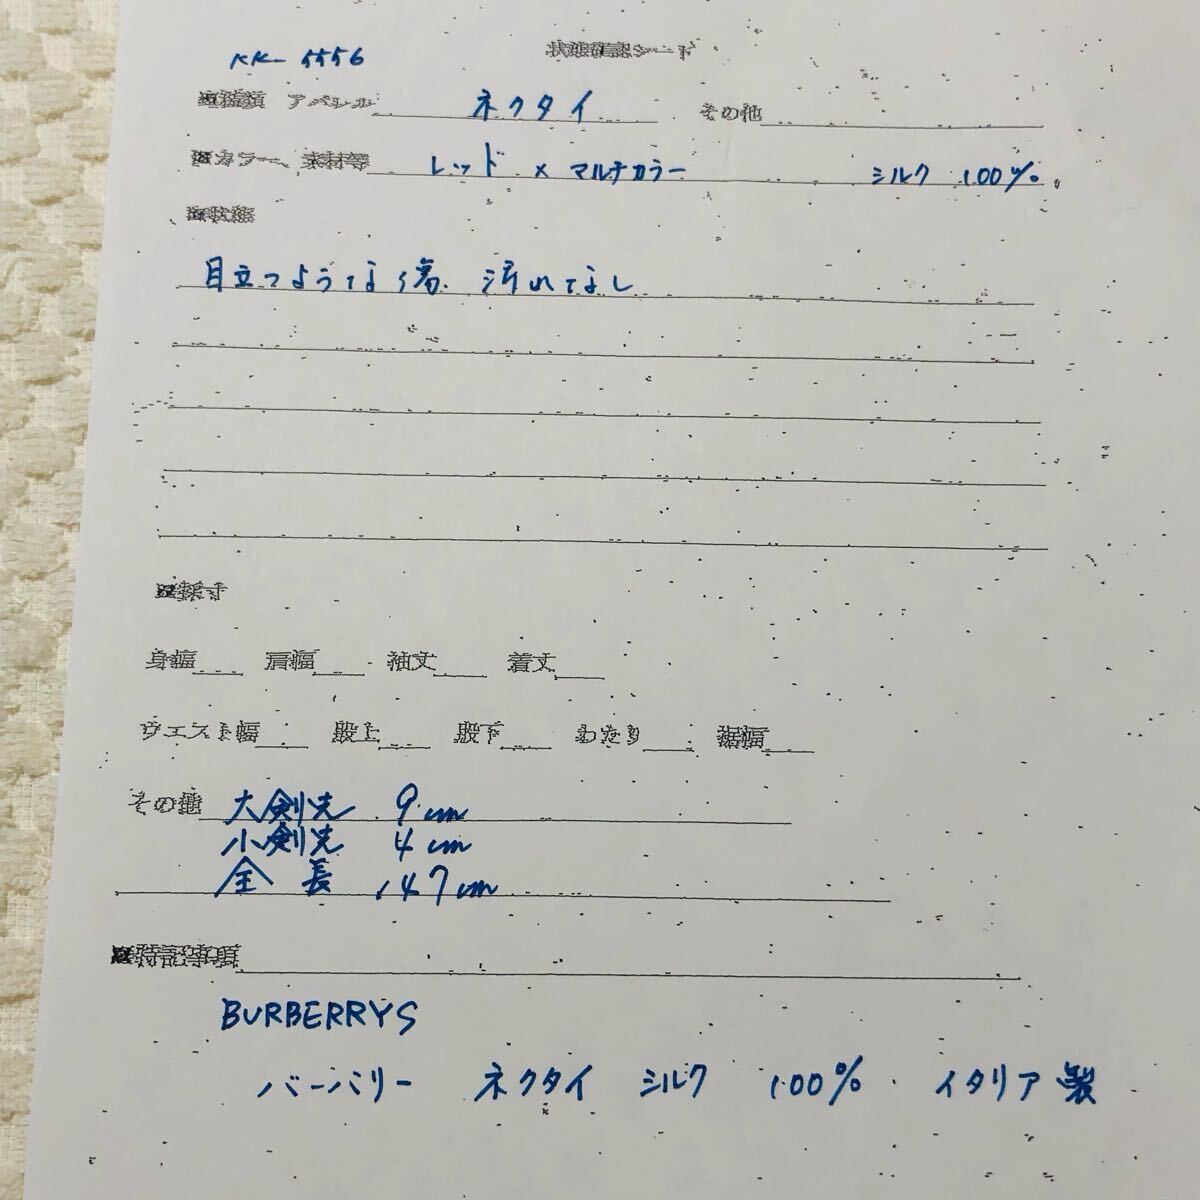 KK-5556
状態確認シート
■種類 アパレル ネクタイ その他
■カラー、素材等 レッド × マルチカラー シルク 100%
■状態
目立つような傷、汚れなし
■採寸
身幅 肩幅 袖丈 着丈
ウエスト幅 股上 股下 わたり 裾幅
その他 大剣先 9cm
小剣先 4cm
全長 147cm
■特記事項
BURBERRYS
バーバリー ネクタイ シルク 100% イタリア製